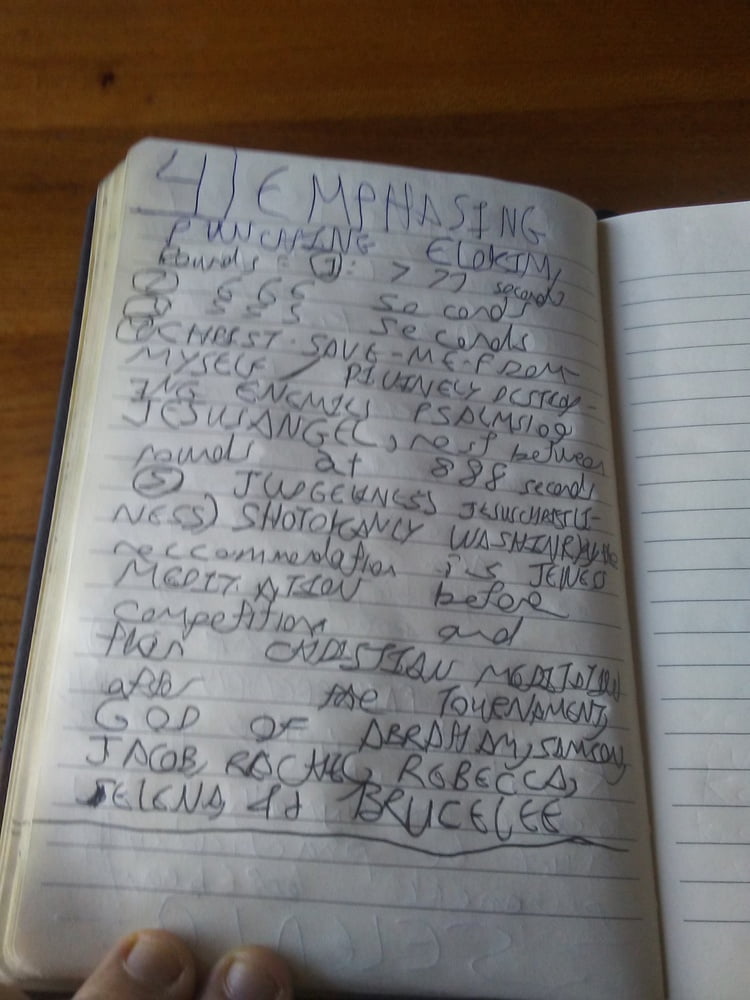 4) EMPHASING
PUNCHING ELOKIM,
rounds: ①: 777 seconds
② 666 seconds
555 seconds
CHREST-SAVE-ME-FROM-
MYSELF / DIVINELY DESTROY-
ING ENEMIES PSALMS109
JESUSANGEL, rest between
rounds at 888 seconds
⑤ JESUSCHRISTLI-
NESS) SHOTOKANLY
reccommendation is
MEDITATION before
competition and
then MEDITATION
after the TOURNAMENT,
GOD OF ABRAHAM, SAMSON,
JACOB, RACHEL, REBECCA,
SELENA, BRUCELEE